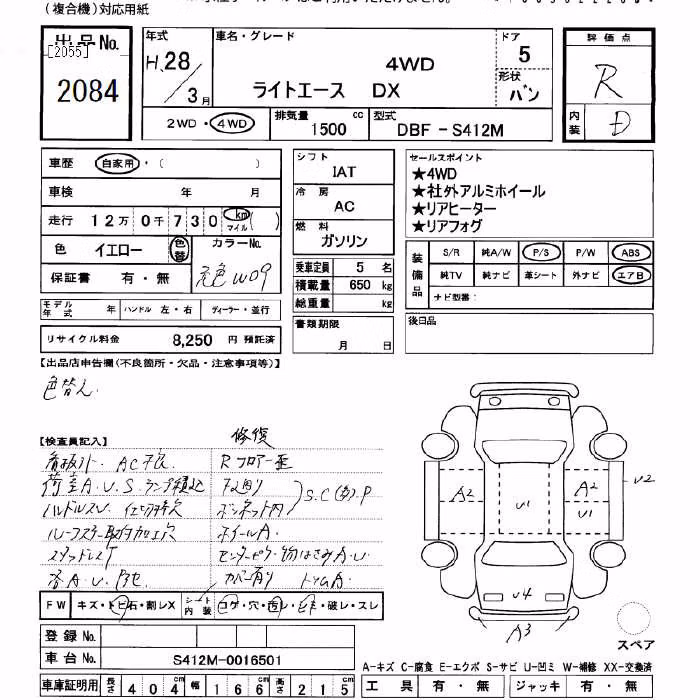 (複合機)対応用紙
出品No.
[2055]
2084
年式
H.28/3月
車名・グレード
4WD
ライトエース DX
ドア
5
形状
バン
評価点
R
内装
D
2WD・4WD
排気量
1500 cc
型式
DBF-S412M
車歴 自家用・( )
車検 年 月
走行 12万0千730 km マイル ( )
色 イエロー 色替
カラーNo.
元色W09
保証書 有・無
モデル年式 年
ハンドル 左・右
ディーラー・並行
リサイクル料金 8,250 円 預託済
シフト
IAT
冷房
AC
燃料
ガソリン
乗車定員 5 名
積載量 650 kg
総重量 kg
書類期限
月 日
セールスポイント
★4WD
★社外アルミホイール
★リアヒーター
★リアフォグ
装備品
S/R 純A/W P/S P/W ABS
純TV 純ナビ 革シート 外ナビ エアB
ナビ型番:
後日品
【出品店申告欄(不良箇所・欠品・注意事項等)】
色替え.
【検査員記入】
修復
看板汁. AC不良. Rフロアー歪
荷室A.U.S ランプ積込 下廻り
ハンドルスレ 仕切棒欠 ボンネット内
S.C(多).P
ルーフステー取付加工穴 ホイールA.
スタッドレスT センターピラー物はさみA.U
各A.U.P色 カバー有り トリムA.
FW キズ・トビ石・割レX
シート内装 コゲ・穴・汚レ・シミ・破レ・スレ
登録No.
車台No. S412M-0016501
車庫証明用 長さ 404cm 幅 166cm 高さ 215cm
A2
U1
A2
U1
U2
U4
A3
スペア
A-キズ C-腐食 E-エクボ S-サビ U-凹ミ W-補修 XX-交換済
工具 有・無 ジャッキ 有・無